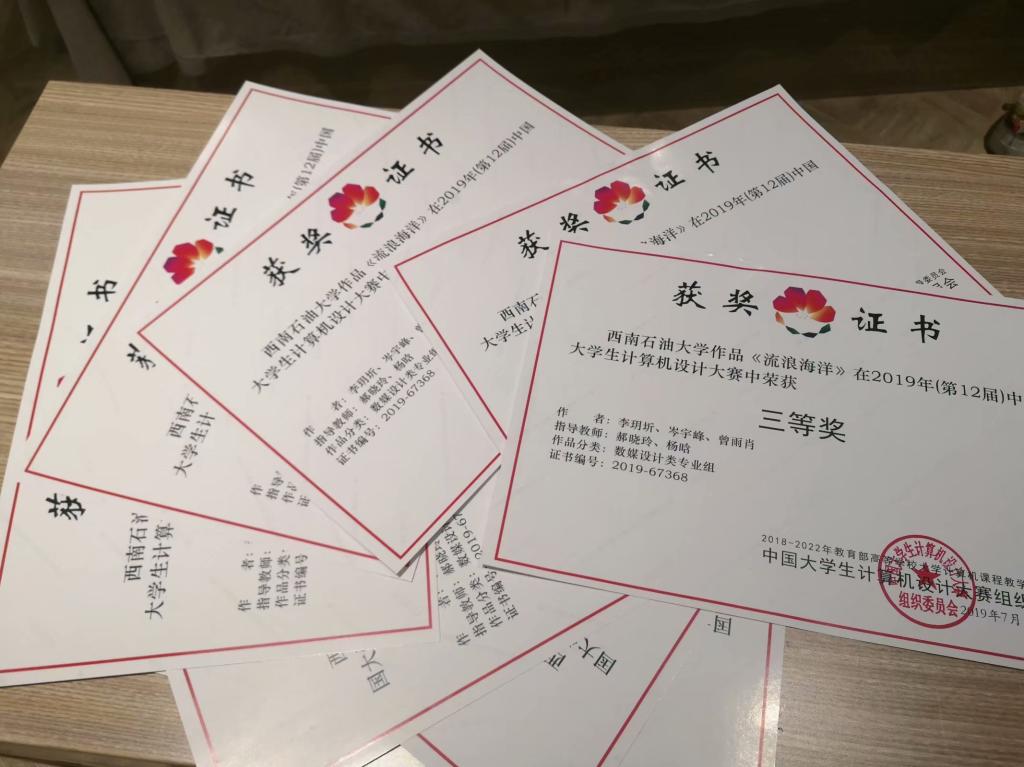 获奖证书
西南石油大学作品《流浪海洋》在2019年(第12届)中
大学生计算机设计大赛中荣获
三等奖
作 者：李玥圻、岑宇峰、曾雨肖
指导教师：郝晓玲、杨晗
作品分类：数媒设计类专业组
证书编号：2019-67368
2018-2022年教育部高等学校大学计算机课程教学
中国大学生计算机设计大赛组织
2019年7月
组织委员会
获奖证书
在2019年(第12届)中国
海洋》
西南石
大学生
委员会
获奖证书
西南石油大学作品《流浪海洋》在2019年(第12届)中国
大学生计算机设计大赛中
作 者：李玥圻、岑宇峰、
指导教师：郝晓玲、杨晗
作品分类：数媒设计类专业组
证书编号：2019-67368
证书
(第12届)中国
西南石
大学生计
作
指导
作品
证
书
获
西南石油
大学生计算
作 者：
指导教师：
作品分类：
证书编号
作 者：
指导教师：郝晓
作品分类：数媒设计
证书编号：2019-67
国大
西
国大
西
国